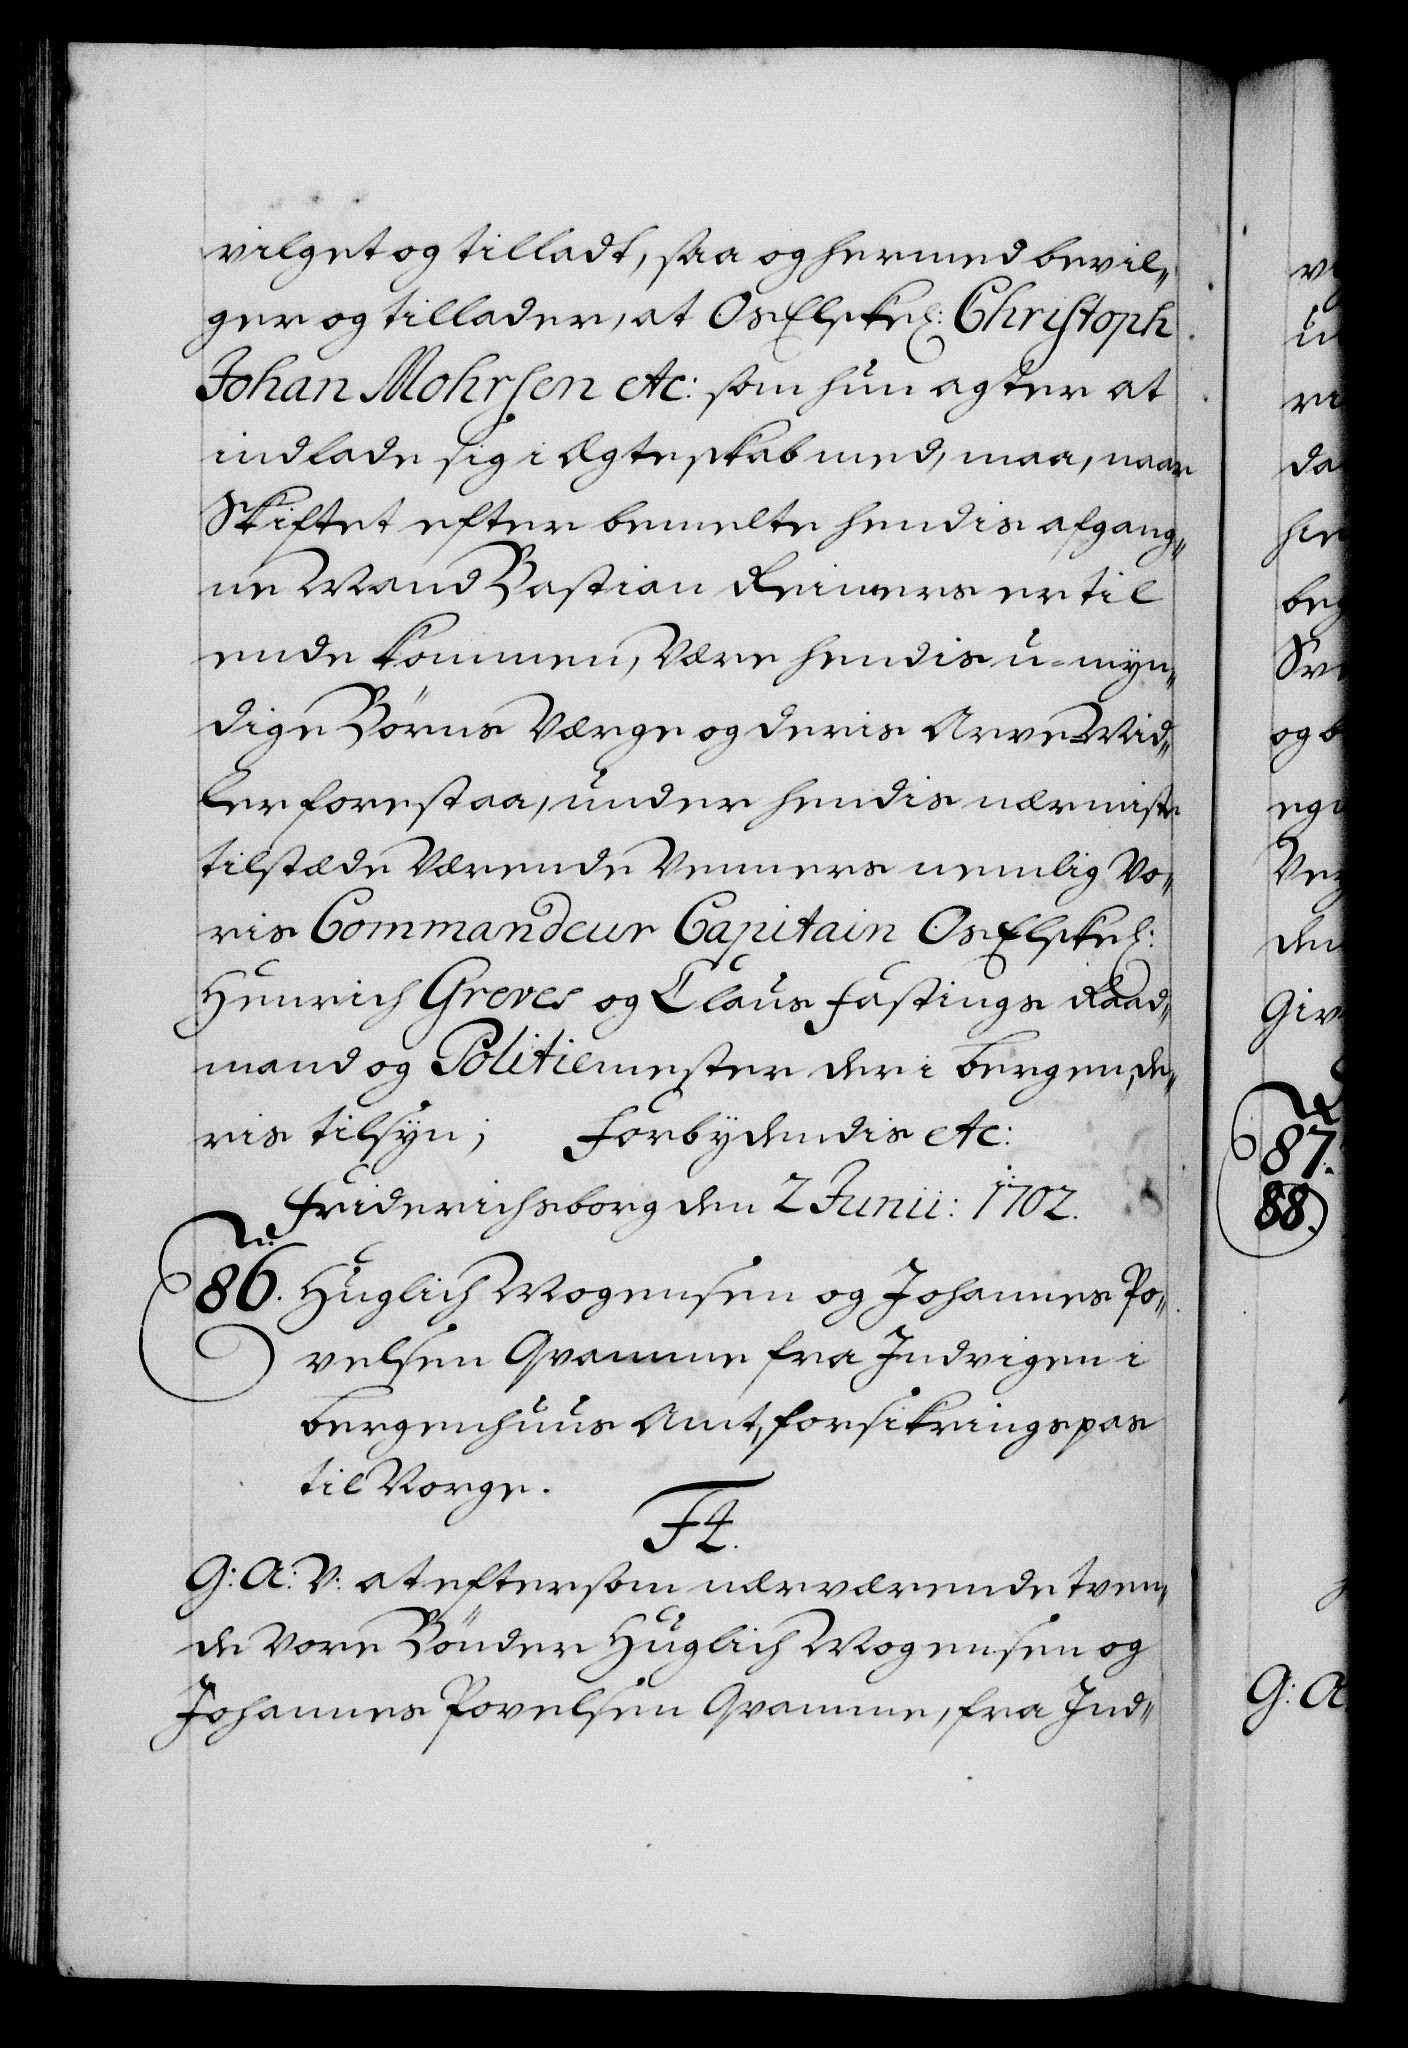 vilget og tilladt, saa og hermed bevil„
ger og tillader, at Os Elskel: Christoph
Johan Mohrsen etc: som hun agter at
indlade sig i Ægteskab med, maa, naar
Skiftet efter bemelte hendis afgang„
ne Mand Bastian Reimers er til
ende kommen, Være hendis u=myn„
dige Börns Værge og deris Arve=Mid„
ler forestaa, under hendis nærmiste
tilstæde Værende Venners nemlig Vo„
ris Commandeur Capitain Os Elskel:
Henrich Greves og Claus Fastings Raad„
mand og Politiemester der i bergen, de„
ris tilsyn; Forbydendis etc:
Friderichsborg den 2 Junii: 1702.
86. Huglich Mogensen og Johannes Po„
velsen Qvamme fra Indvigen i
bergenhuus Amt, forsikringspas
til Norge.
F4.
G: A: V: at eftersom nærværende tven„
de Vore Bönder Huglich Mogensen og
Johannes Povelsen Qvamme, fra Ind„
da
beg
og b
Ver
den
Giv
87.
88.
G: A